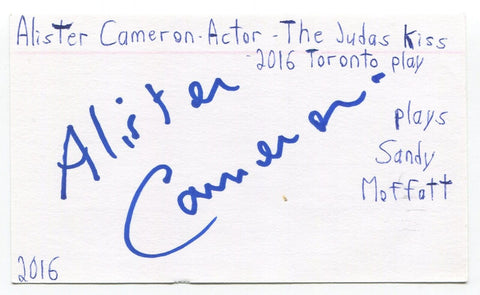 Alister Cameron-Actor-The Judas Kiss
-2016 Toronto play
Alister
Cameron
plays
Sandy
Moffatt
2016